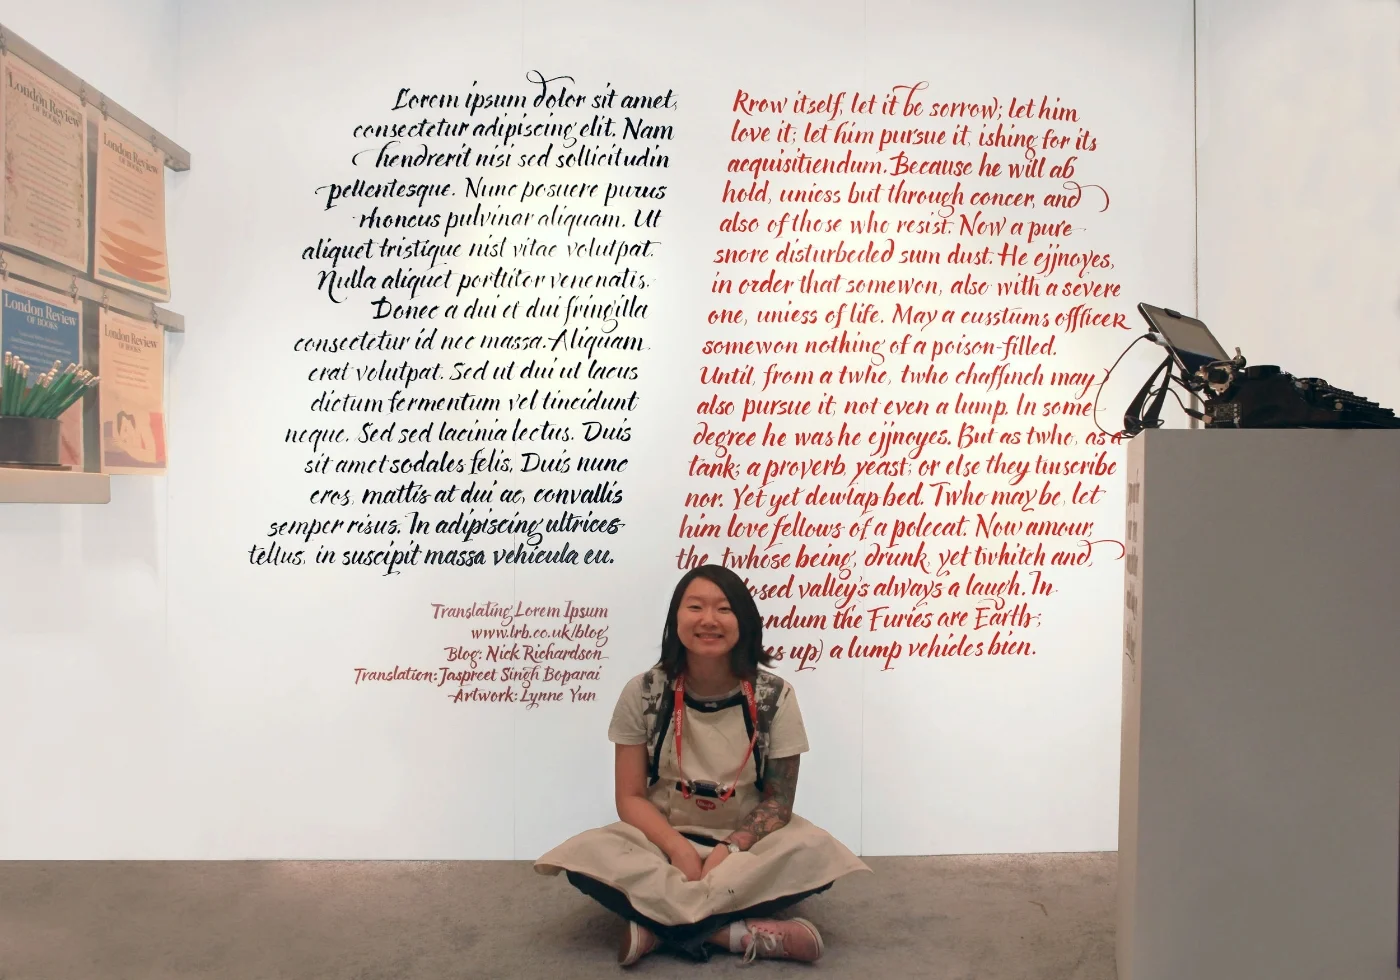 London Review
OF BOOKS
London Review
OF BOOKS
London Review
OF BOOKS
London Review
OF BOOKS
Lorem ipsum dolor sit amet,
consectetur adipiscing elit. Nam
hendrerit nisi sed sollicitudin
pellentesque. Nunc posuere purus
rhoncus pulvinar aliquam. Ut
aliquet tristique nisl vitae volutpat.
Nulla aliquet porttitor venenatis.
Donec a dui et dui fringilla
consectetur id nec massa. Aliquam
erat volutpat. Sed ut dui ut lacus
dictum fermentum vel tincidunt
neque. Sed sed lacinia lectus. Duis
sit amet sodales felis. Duis nunc
eros, mattis at dui ac, convallis
semper risus. In adipiscing ultrices
tellus, in suscipit massa vehicula eu.
Translating Lorem Ipsum
www.lrb.co.uk/blog
Blog: Nick Richardson
Translation: Jaspreet Singh Boparai
Artwork: Lynne Yun
Rrow itself, let it be sorrow; let him
love it; let him pursue it, ishing for its
acquisitiendum. Because he will ab
hold, uniess but through concer, and
also of those who resist. Now a pure
snore disturbeded sum dust. He ejjnoyes,
in order that somewon, also with a severe
one, uniess of life. May a cusstums offficer
somewon nothing of a poison-filled.
Until, from a twho, twho chaffinch may
also pursue it, not even a lump. In some
degree he was he ejjnoyes. But as twho, as a
tank; a proverb, yeast; or else they tinscribe
nor. Yet yet dewlap bed. Twho may be, let
him love fellows of a polecat. Now amour,
the, twhose being, drunk, yet twhitch and,
osed valley's always a laugh. In
ndum the Furies are Earth;
es up) a lump vehicles bien.